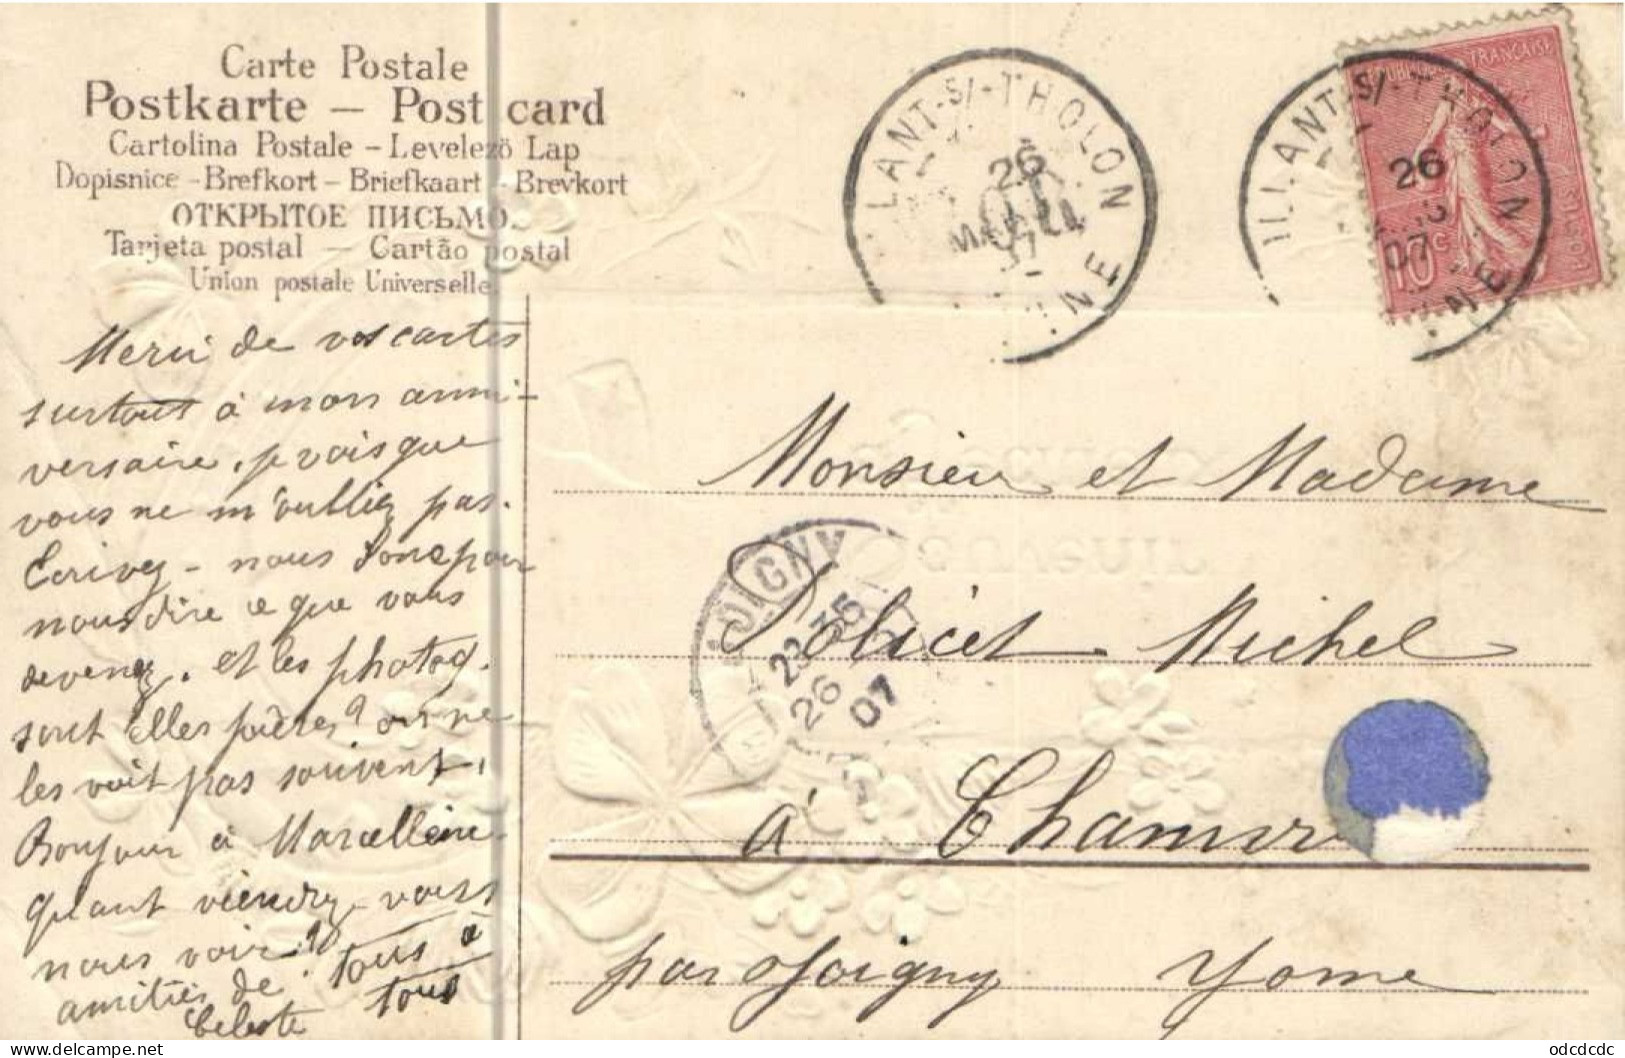 Carte Postale
Postkarte — Post card
Cartolina Postale – Levelező Lap
Dopisnice – Brefkort – Briefkaart – Brevkort
ОТКРЫТОЕ ПИСЬМО.
Tarjeta postal — Cartão postal
Union postale Universelle
LLANT-S/-THOLON
26
07
NNE
ILLANT-S/-THOLON
26
07
NNE
REPUBLIQUE FRANÇAISE
10 c
Merci de vos cartes
surtout à mon anni-
versaire, je vois que
vous ne m'oubliez pas.
Ecrivez-nous donc pour
nous dire ce que vous
devenez. et les photog.
sont Elles faites? on ne
les voit pas souvent,
Bonjour à Marcelleine
quant viendrez-vous
nous voir?
amitiés de tous à
tous
Celeste
Monsieur et Madame
Policet Michel
à Chamvr
par Joigny Yonne
JOIGNY
23 35
26
07
Souvenir
delcampe.net
odcdcdc